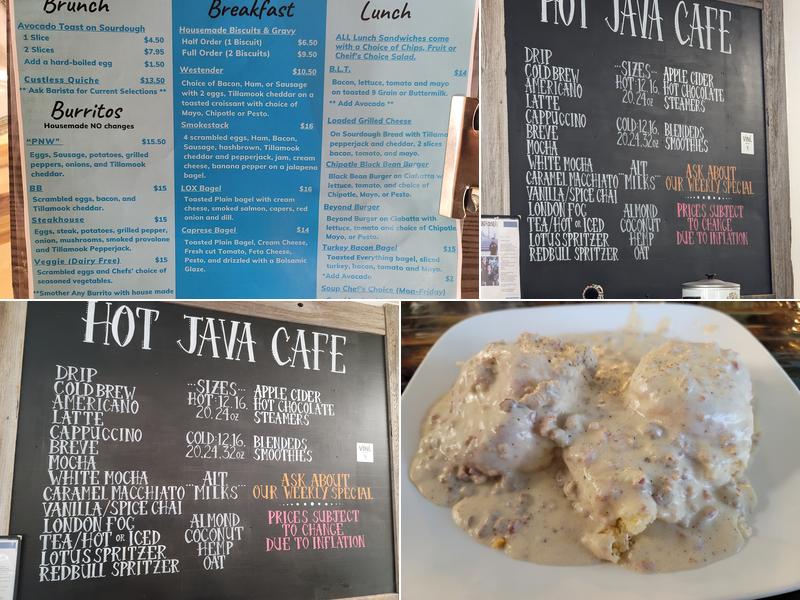 Brunch
Avocado Toast on Sourdough
1 Slice $4.50
2 Slices $7.95
Add a hard-boiled egg $1.50
Custless Quiche $13.50
** Ask Barista for Current Selections **
Burritos
Housemade NO changes
"PNW" $15.50
Eggs, Sausage, potatoes, grilled
peppers, onions, and Tillamook
cheddar.
BB $15
Scrambled eggs, bacon, and
Tillamook cheddar.
Steakhouse $15
Eggs, steak, potatoes, grilled pepper,
onion, mushrooms, smoked provolone
and Tillamook Pepperjack.
Veggie (Dairy Free) $15
Scrambled eggs and Chefs' choice of
seasoned vegetables.
**Smother Any Burrito with house made
Breakfast
Housemade Biscuits & Gravy
Half Order (1 Biscuit) $6.50
Full Order (2 Biscuits) $9.50
Westender $10.50
Choice of Bacon, Ham, or Sausage
with 2 eggs, Tillamook cheddar on a
toasted croissant with choice of
Mayo, Chipotle or Pesto.
Smokestack $16
4 scrambled eggs, Ham, Bacon,
Sausage, hashbrown, Tillamook
cheddar and pepperjack, jam, cream
cheese, banana pepper on a jalapeno
bagel.
LOX Bagel $16
Toasted Plain bagel with cream
cheese, smoked salmon, capers, red
onion and dill.
Caprese Bagel $14
Toasted Plain Bagel, Cream Cheese,
Fresh cut Tomato, Feta Cheese,
Pesto, and drizzled with a Balsamic
Glaze.
Lunch
ALL Lunch Sandwiches come
with a Choice of Chips, Fruit or
Cheif's Choice Salad.
B.L.T. $14
Bacon, lettuce, tomato and mayo
on toasted 9 Grain or Buttermilk.
** Add Avocado **
Loaded Grilled Cheese
On Sourdough Bread with Tillamo
pepperjack and cheddar, 2 slices
bacon, tomato, and mayo.
Chipotle Black Bean Burger
Black Bean Burger on Ciabatta w
lettuce, tomato, and choice of
Chipotle, Mayo, or Pesto.
Beyond Burger
Beyond Burger on Ciabatta with
lettuce, tomato and choice of Chipotle
Mayo, or Pesto.
Turkey Bacon Bagel $15
Toasted Everything bagel, sliced
turkey, bacon, tomato and Mayo.
*Add Avocado $2
Soup Chef's Choice (Mon-Friday)
HOT JAVA CAFE
DRIP
COLD BREW
AMERICANO
LATTE
CAPPUCCINO
BREVE
MOCHA
WHITE MOCHA
CARAMEL MACCHIATO
VANILLA/SPICE CHAI
LONDON FOG
TEA/HOT OR ICED
LOTUS SPRITZER
REDBULL SPRITZER
...SIZES...
HOT:12.16.
20.24oz
COLD:12.16.
20.24.32oz
ALT
...MILKS...
ALMOND
COCONUT
HEMP
OAT
APPLE CIDER
HOT CHOCOLATE
STEAMERS
BLENDEDS
SMOOTHIES
ASK ABOUT
OUR WEEKLY SPECIAL
PRICES SUBJECT
TO CHANGE
DUE TO INFLATION
HOT JAVA CAFE
DRIP
COLD BREW
AMERICANO
LATTE
CAPPUCCINO
BREVE
MOCHA
WHITE MOCHA
CARAMEL MACCHIATO
VANILLA/SPICE CHAI
LONDON FOG
TEA/HOT OR ICED
LOTUS SPRITZER
REDBULL SPRITZER
...SIZES...
HOT:12.16.
20.24oz
COLD:12.16.
20.24.32oz
ALT
...MILKS...
ALMOND
COCONUT
HEMP
OAT
APPLE CIDER
HOT CHOCOLATE
STEAMERS
BLENDEDS
SMOOTHIES
ASK ABOUT
OUR WEEKLY SPECIAL
PRICES SUBJECT
TO CHANGE
DUE TO INFLATION